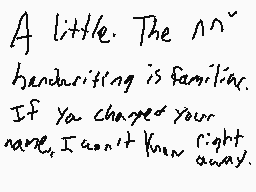 A little. The
handwriting is familiar.
If you changed your
name, I won't know right
away.